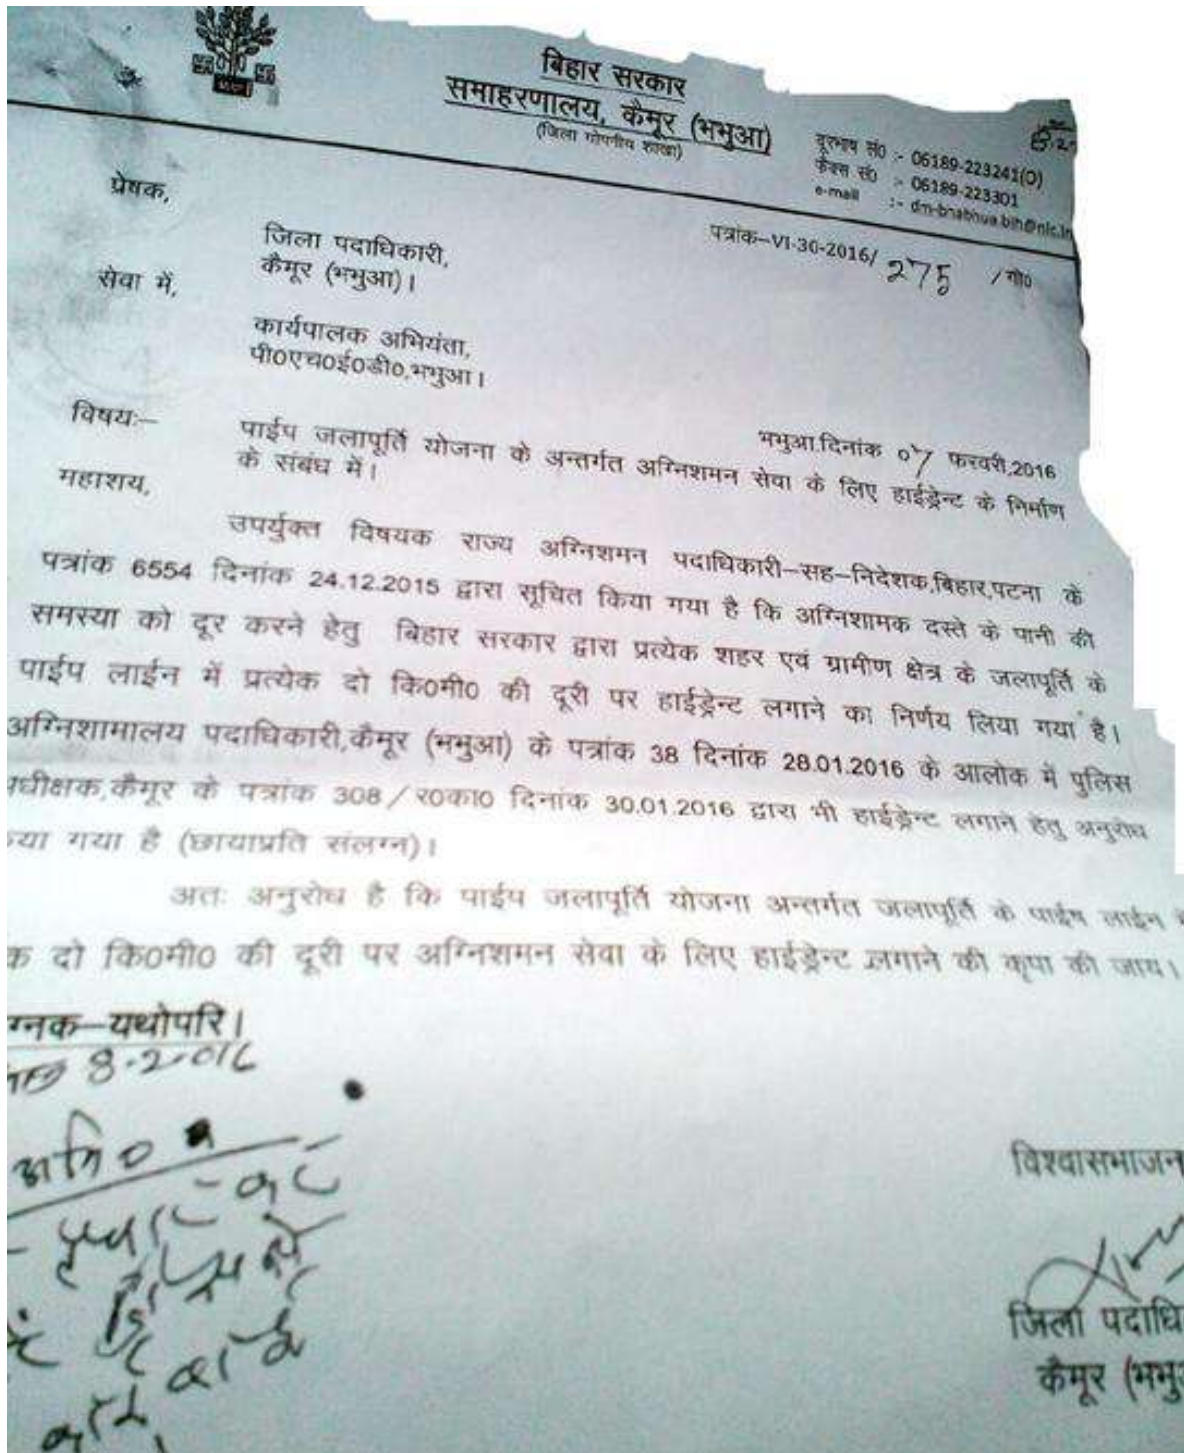 बिहार सरकार
समाहरणालय, कैमूर (भभुआ)
(जिला गोपनीय शाखा)
दूरभाष सं0 :- 06189-223241(O)
फैक्स सं0 :- 06189-223301
e-mail :- dm-bhabhua.bih@nic.in
पत्रांक–VI-30-2016/ 275 /गो0
प्रेषक,
जिला पदाधिकारी,
कैमूर (भभुआ)।
सेवा में,
कार्यपालक अभियंता,
पी0एच0ई0डी0,भभुआ।
भभुआ,दिनांक 07 फरवरी,2016
विषयः– पाईप जलापूर्ति योजना के अन्तर्गत अग्निशमन सेवा के लिए हाईड्रेन्ट के निर्माण
के संबंध में।
महाशय,
उपर्युक्त विषयक राज्य अग्निशमन पदाधिकारी–सह–निदेशक,बिहार,पटना के
पत्रांक 6554 दिनांक 24.12.2015 द्वारा सूचित किया गया है कि अग्निशामक दस्ते के पानी की
समस्या को दूर करने हेतु बिहार सरकार द्वारा प्रत्येक शहर एवं ग्रामीण क्षेत्र के जलापूर्ति के
पाईप लाईन में प्रत्येक दो कि0मी0 की दूरी पर हाईड्रेन्ट लगाने का निर्णय लिया गया है।
अग्निशामालय पदाधिकारी,कैमूर (भभुआ) के पत्रांक 38 दिनांक 28.01.2016 के आलोक में पुलिस
धीक्षक,कैमूर के पत्रांक 308/र0का0 दिनांक 30.01.2016 द्वारा भी हाईड्रेन्ट लगाने हेतु अनुरोध
या गया है (छायाप्रति संलग्न)।
अतः अनुरोध है कि पाईप जलापूर्ति योजना अन्तर्गत जलापूर्ति के पाईप लाईन
क दो कि0मी0 की दूरी पर अग्निशमन सेवा के लिए हाईड्रेन्ट लगाने की कृपा की जाय।
ग्नक–यथोपरि।
8.2.016
विश्वासभाजन
जिला पदाधि
कैमूर (भभु